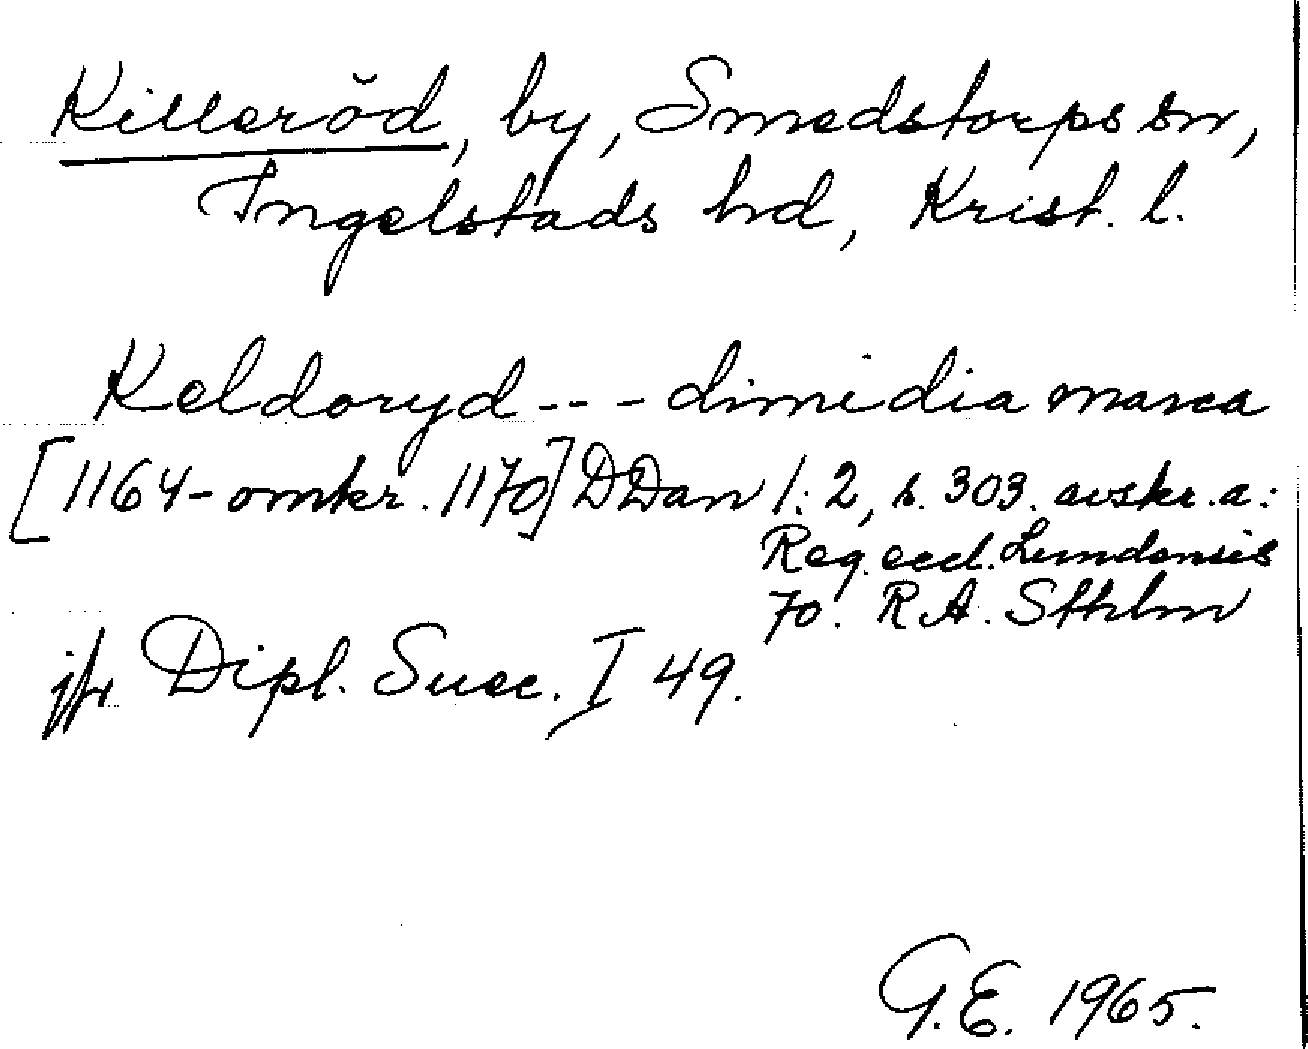 Killeröd, by, Smedstorps sn,
Ingelstads hd, Krist. l.
Keldoryd --- dimidia marca
[1164-omkr. 1170] DDan 1:2, s. 303. avskr. a:
Reg. eccl. Lundensis
70. RA. Sthlm
jfr Dipl. Suec. I 49.
G.E. 1965.